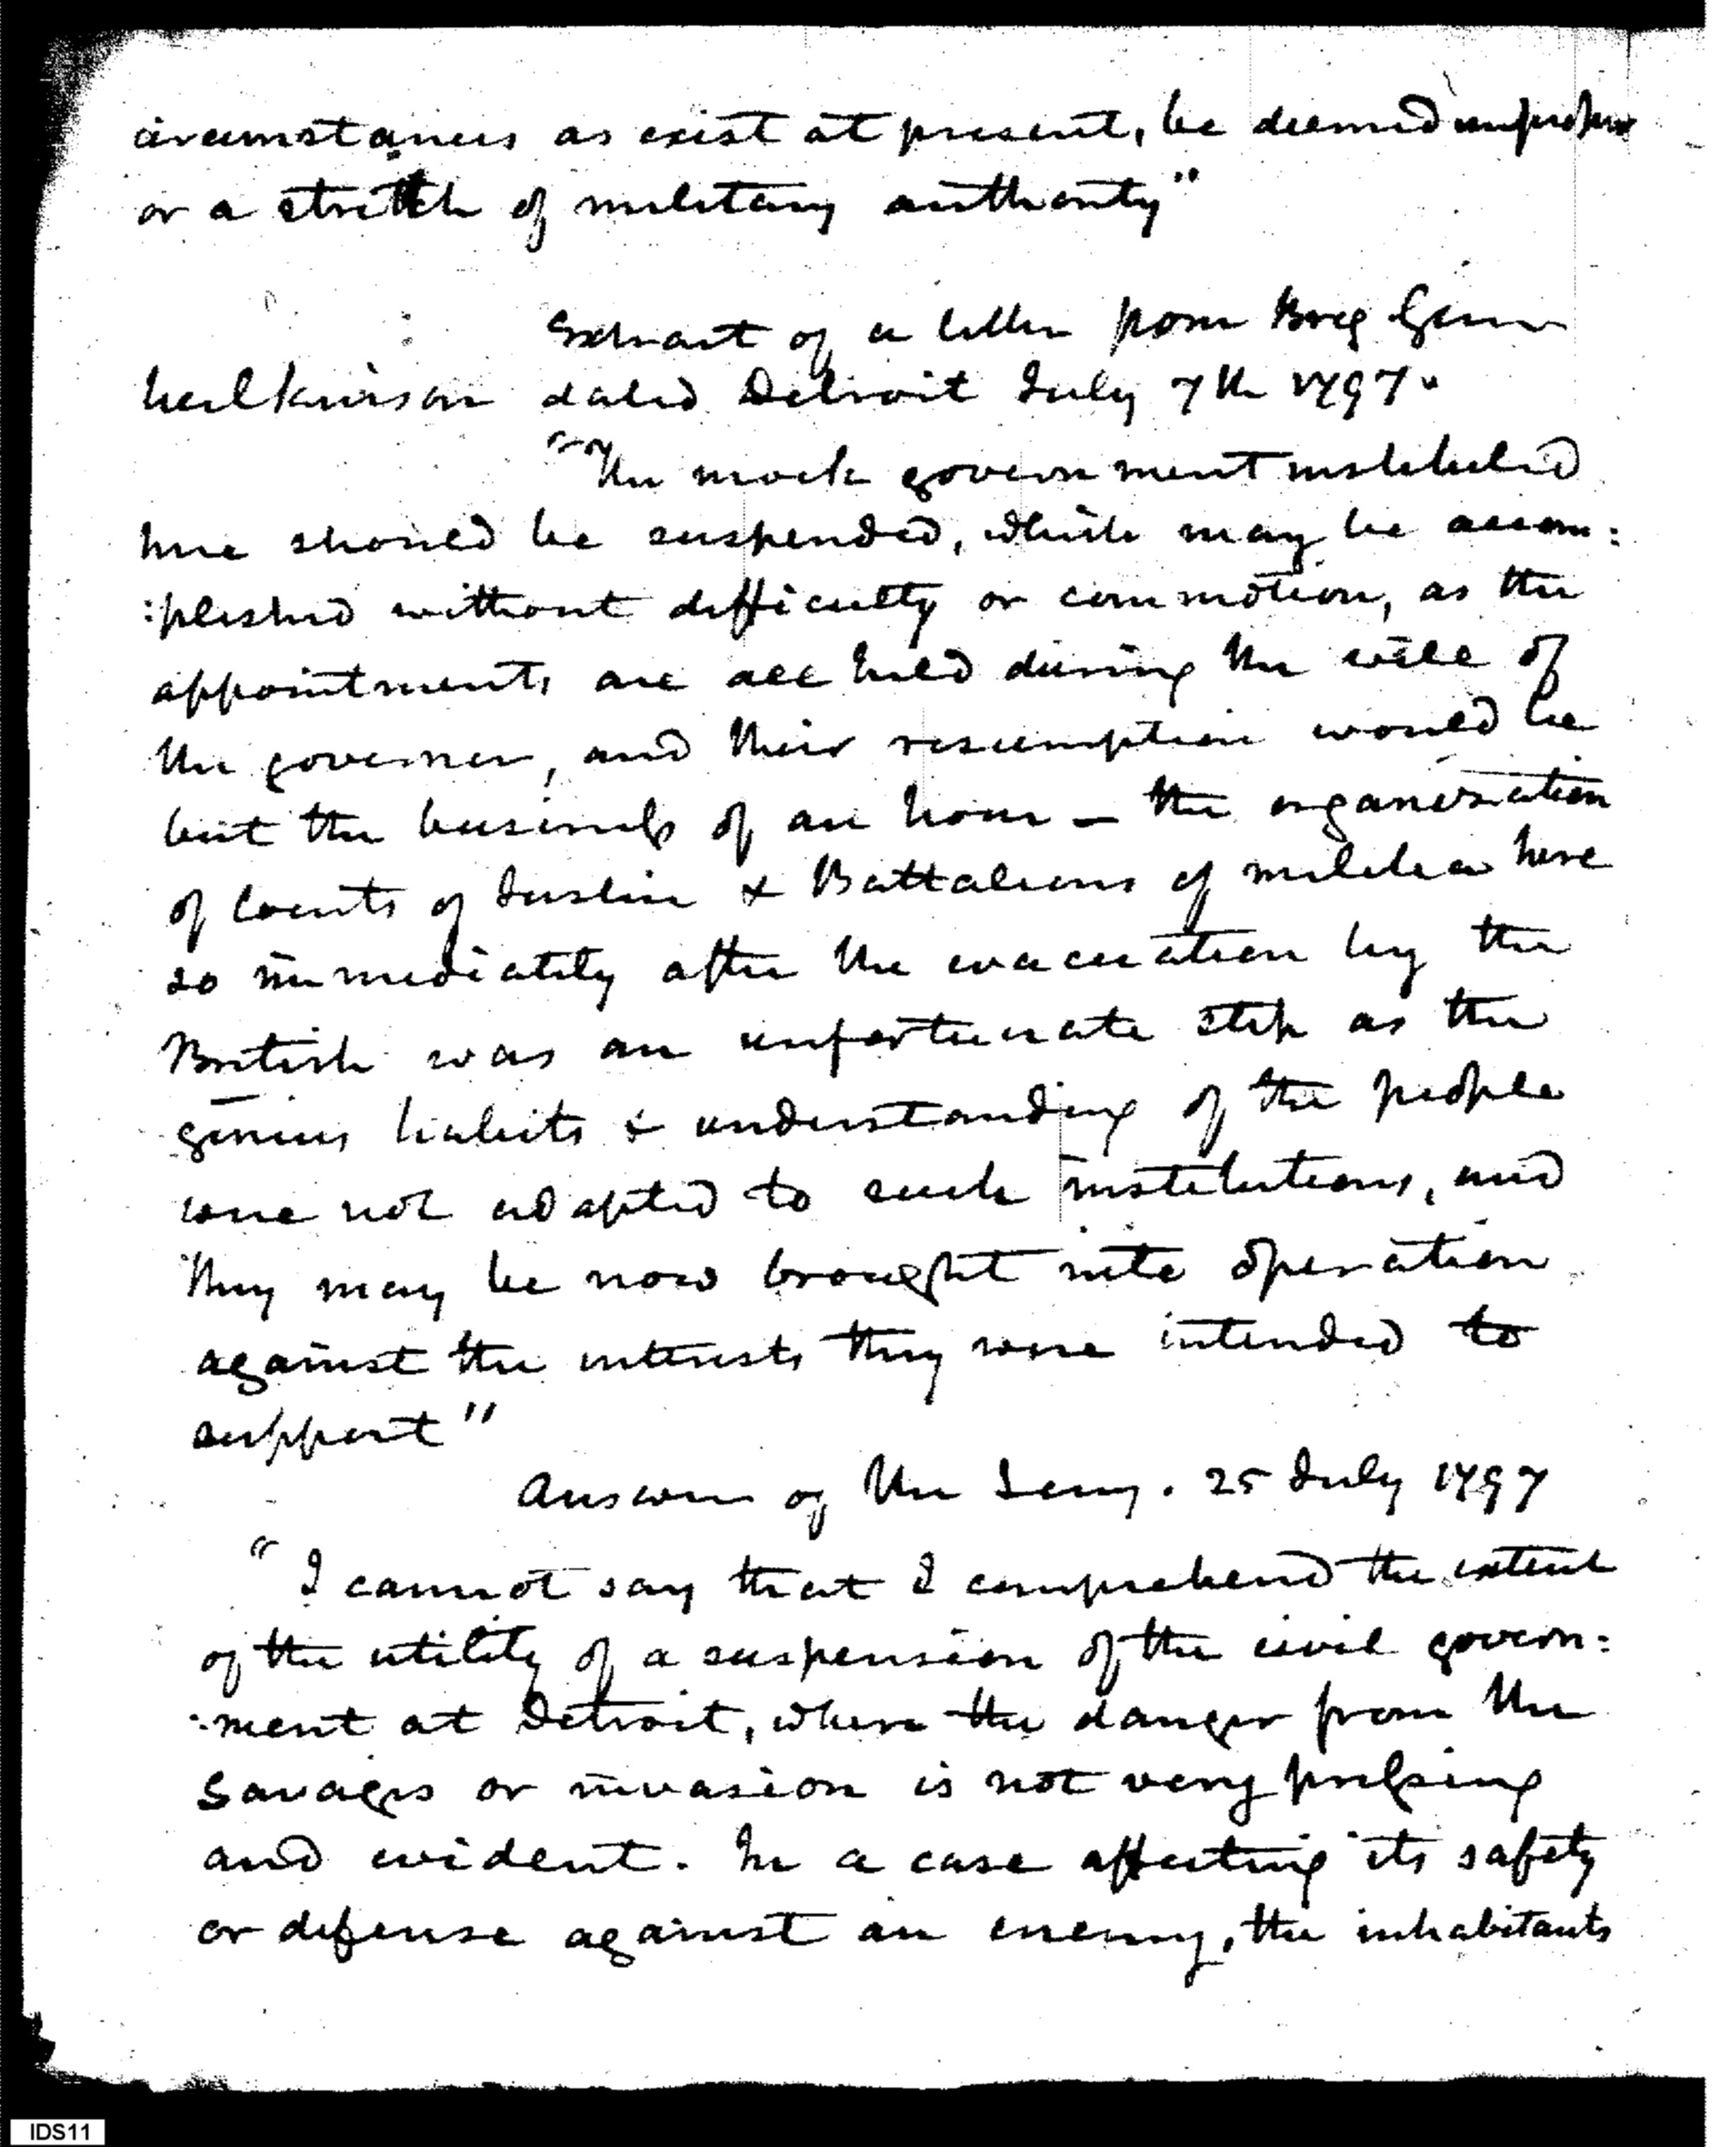 circumstances as exist at present, be deemed improper
or a stretch of military authority"
Extract of a letter from Brig Genr
Wilkinson dated Detroit July 7th 1797"
"The mock government instituted
here should be suspended, which may be accom:
:plished without difficulty or commotion, as the
appointments are all held during the will of
the governor, and their resumption would be
but the business of an hour – the organization
of Courts of Justice & Battalions of militia here
so immediately after the evacuation by the
British was an unfortunate step as the
genius habits & understanding of the people
were not adapted to such institutions, and
they may be now brought into operation
against the interests they were intended to
support"
Answer of the Secy. 25 July 1797
"I cannot say that I comprehend the extent
of the utility of a suspension of the civil govern:
:ment at Detroit, where the danger from the
Savages or invasion is not very pressing
and evident. In a case affecting its safety
or defense against an enemy, the inhabitants
IDS11